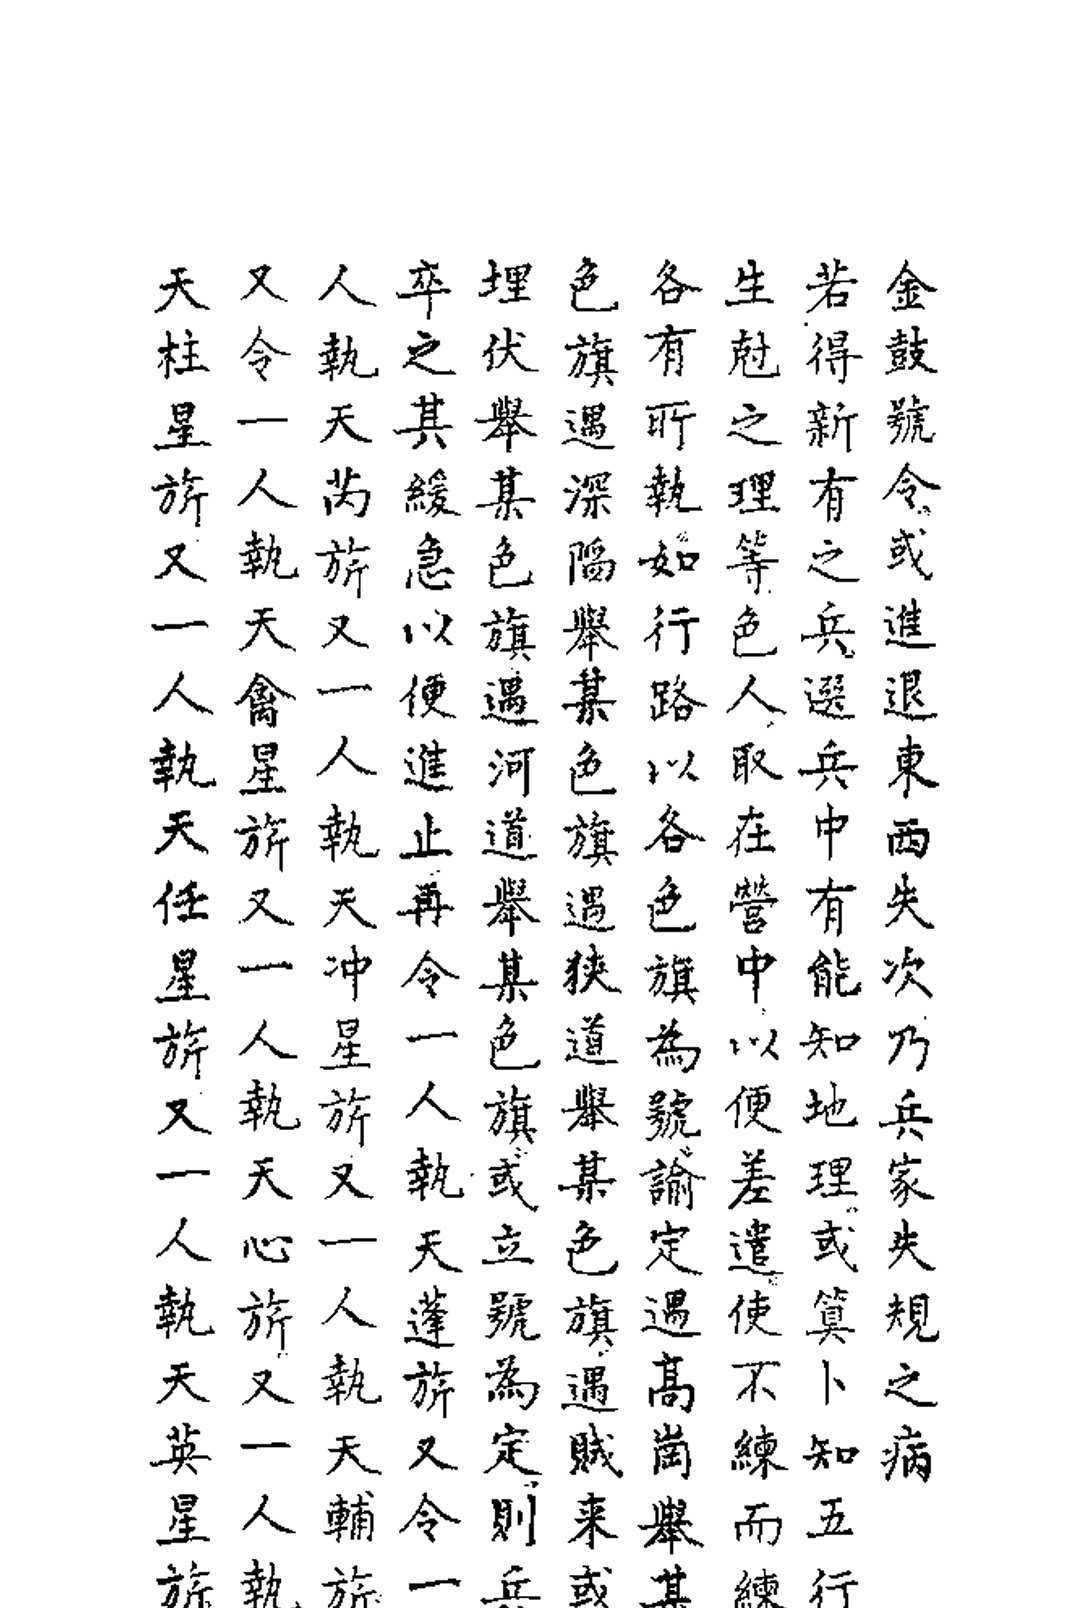 金鼓號令或進退東西失次乃兵家失規之病
若得新有之兵選兵中有能知地理或算卜知五行
生尅之理等色人取在營中以便差遣使不練而練
各有所執如行路以各色旗為號諭定遇高崗舉某
色旗遇深陷舉某色旗遇狹道舉某色旗遇賊来或
埋伏舉某色旗遇河道舉某色旗或立號為定則兵
卒之其緩急以便進止再令一人執天蓬旂又令一
人執天芮旂又一人執天冲星旂又一人執天輔旂
又令一人執天禽星旂又一人執天心旂又一人執
天柱星旂又一人執天任星旂又一人執天英星旂